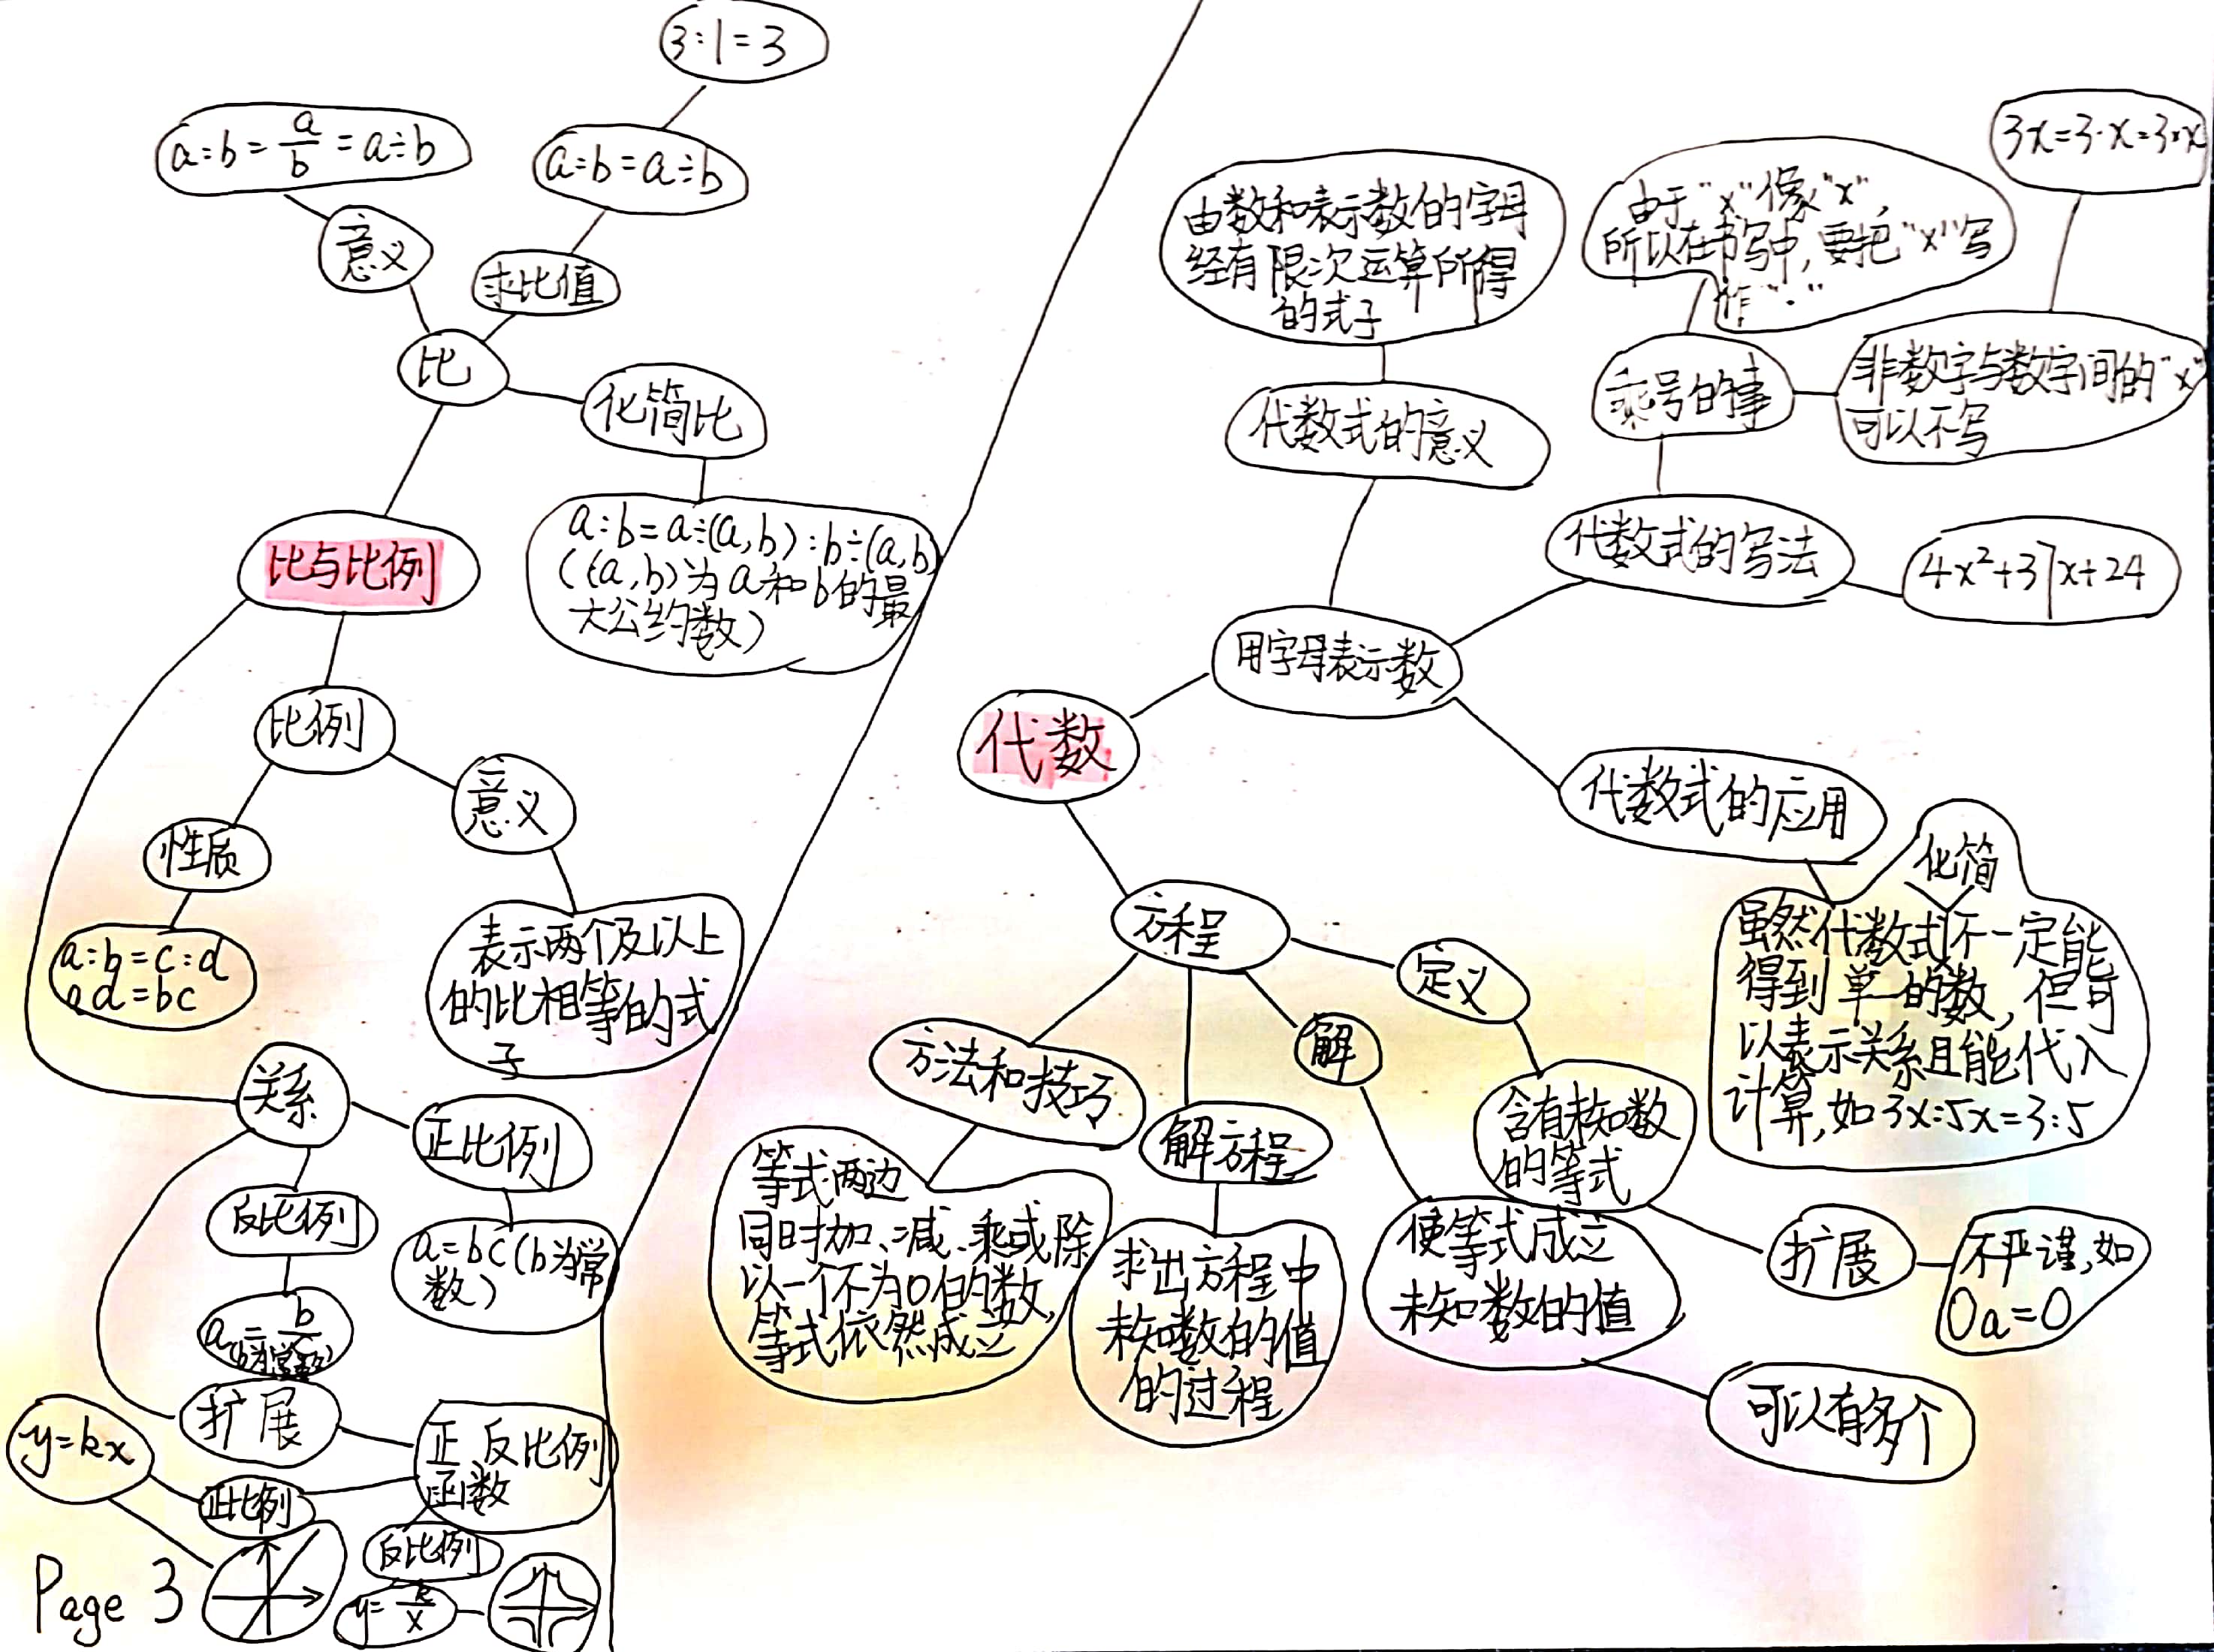 3:1=3
a:b=a/b=a÷b
a:b=a÷b
意义
求比值
比
化简比
a:b=a÷(a,b):b÷(a,b)
((a,b)为a和b的最
大公约数)
比与比例
比例
意义
性质
表示两个及以上
的比相等的式
子
a:b=c:d
ad=bc
关系
正比例
a=bc(b为常
数)
反比例
(b为常数)
扩展
正反比例
函数
正比例
y=kx
反比例
y=k/x
Page 3
代数
用字母表示数
代数式的意义
由数和表示数的字母
经有限次运算所得
的式子
代数式的写法
4x²+37x+24
乘号的事
由于"x"像"x",
所以在书写中,要把"x"写
作"·"
非数字与数字间的"x"
可以不写
3x=3·x=3×x
代数式的应用
化简
虽然代数式不一定能
得到单一的数,但可
以表示关系且能代入
计算,如3x:5x=3:5
方程
定义
含有未知数
的等式
扩展
不严谨,如
0a=0
解
使等式成立
未知数的值
可以有多个
解方程
求出方程中
未知数的值
的过程
方法和技巧
等式两边
同时加、减、乘或除
以一个不为0的数,
等式依然成立